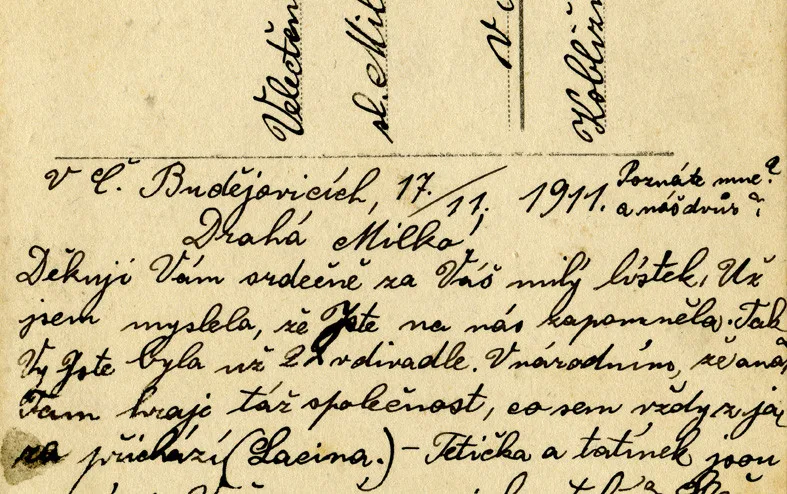 Velectěn
sl. Mil
V
Koblížn
V Č. Budějovicích, 17./11. 1911. Poznáte mne?
a náš dvůr?
Drahá Milko!
Děkuji Vám srdečně za Váš milý lístek. Už
jsem myslela, že Jste na nás zapomněla. Tak
Vy Jste byla už 2x v divadle. V národním, že ano,
Tam hraje táž společnost, co sem vždy z ja
ra přichází (Lacina.) – Tetička a tatínek jsou